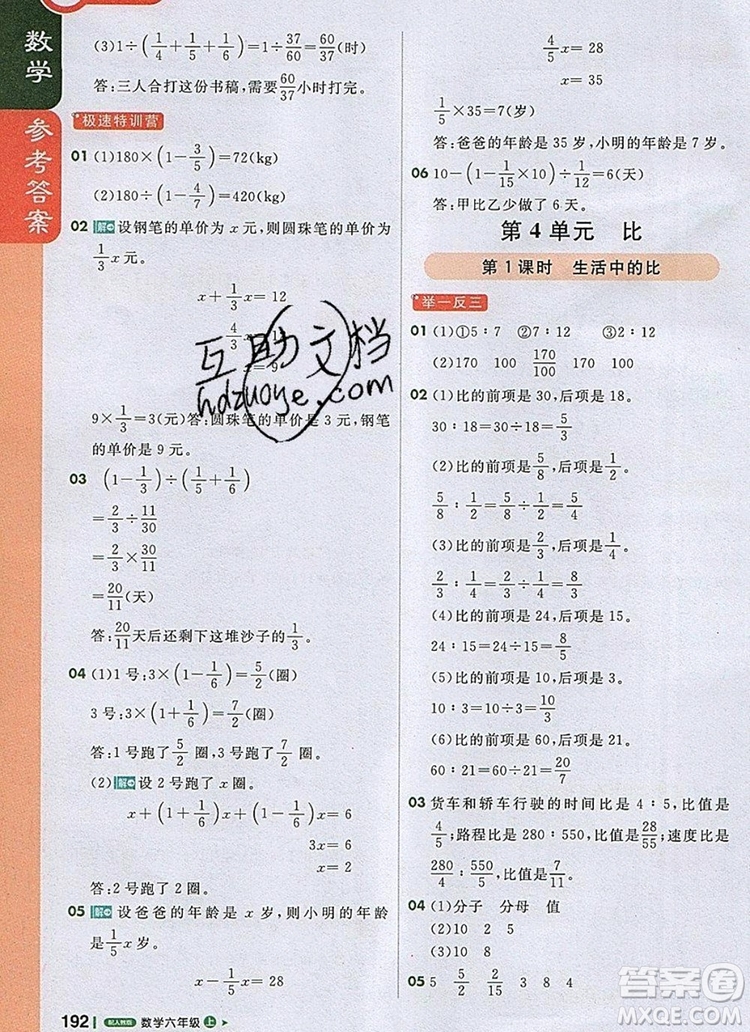 数学
参考答案
(3)1÷(1/4+1/5+1/6)=1÷37/60=60/37(时)
答:三人合打这份书稿,需要60/37小时打完。
极速特训营
01 (1)180×(1-3/5)=72(kg)
(2)180÷(1-4/7)=420(kg)
02 解 设钢笔的单价为x元,则圆珠笔的单价为
1/3x元。
x+1/3x=12
4/3x=
x=9
9×1/3=3(元)答:圆珠笔的单价是3元,钢笔
的单价是9元。
03 (1-1/3)÷(1/5+1/6)
=2/3÷11/30
=2/3×30/11
=20/11(天)
答:20/11天后还剩下这堆沙子的1/3。
04 (1)1号:3×(1-1/6)=5/2(圈)
3号:3×(1+1/6)=7/2(圈)
答:1号跑了5/2圈,3号跑了7/2圈。
(2)解 设2号跑了x圈。
x+(1+1/6)x+(1-1/6)x=6
3x=6
x=2
答:2号跑了2圈。
05 解 设爸爸的年龄是x岁,则小明的年龄
是1/5x岁。
x-1/5x=28
192 配人教版 数学六年级 上
4/5x=28
x=35
1/5×35=7(岁)
答:爸爸的年龄是35岁,小明的年龄是7岁。
06 10-(1-1/15×10)÷1/12=6(天)
答:甲比乙少做了6天。
第4单元 比
第1课时 生活中的比
举一反三
01 (1)①5:7 ②7:12 ③5:12
(2)170 100 170/100 170 100
02 (1)比的前项是30,后项是18。
30:18=30÷18=5/3
(2)比的前项是5/8,后项是1/2。
5/8:1/2=5/8÷1/2=5/4
(3)比的前项是2/3,后项是1/4。
2/3:1/4=2/3÷1/4=8/3
(4)比的前项是24,后项是15。
24:15=24÷15=8/5
(5)比的前项是10,后项是3。
10:3=10÷3=10/3
(6)比的前项是60,后项是22。
60:22=60÷22=30/11
03 货车和轿车行驶的时间比是4:5,比值是
4/5;路程比是280:550,比值是28/55;速度比是
280/4:550/5,比值是7/11。
04 (1)分子 分母 值
(2)10 2 5
(3)10 8
05 5 5/2 2/15 3 8/4 8/5
互助文档
hdzuoye.com
答案圈
MXQE.COM